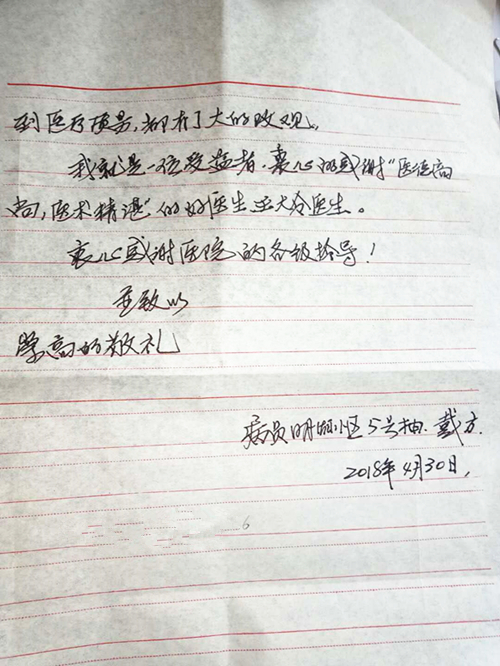 到医疗质量,都有了大的改观。
我就是一位受益者,衷心的感谢“医德高
尚,医术精湛”的好医生王大冷医生。
衷心感谢医院的各级指导!
至致以
崇高的敬礼
病员明湖小区5号楼 戴方
2018年4月30日,
6